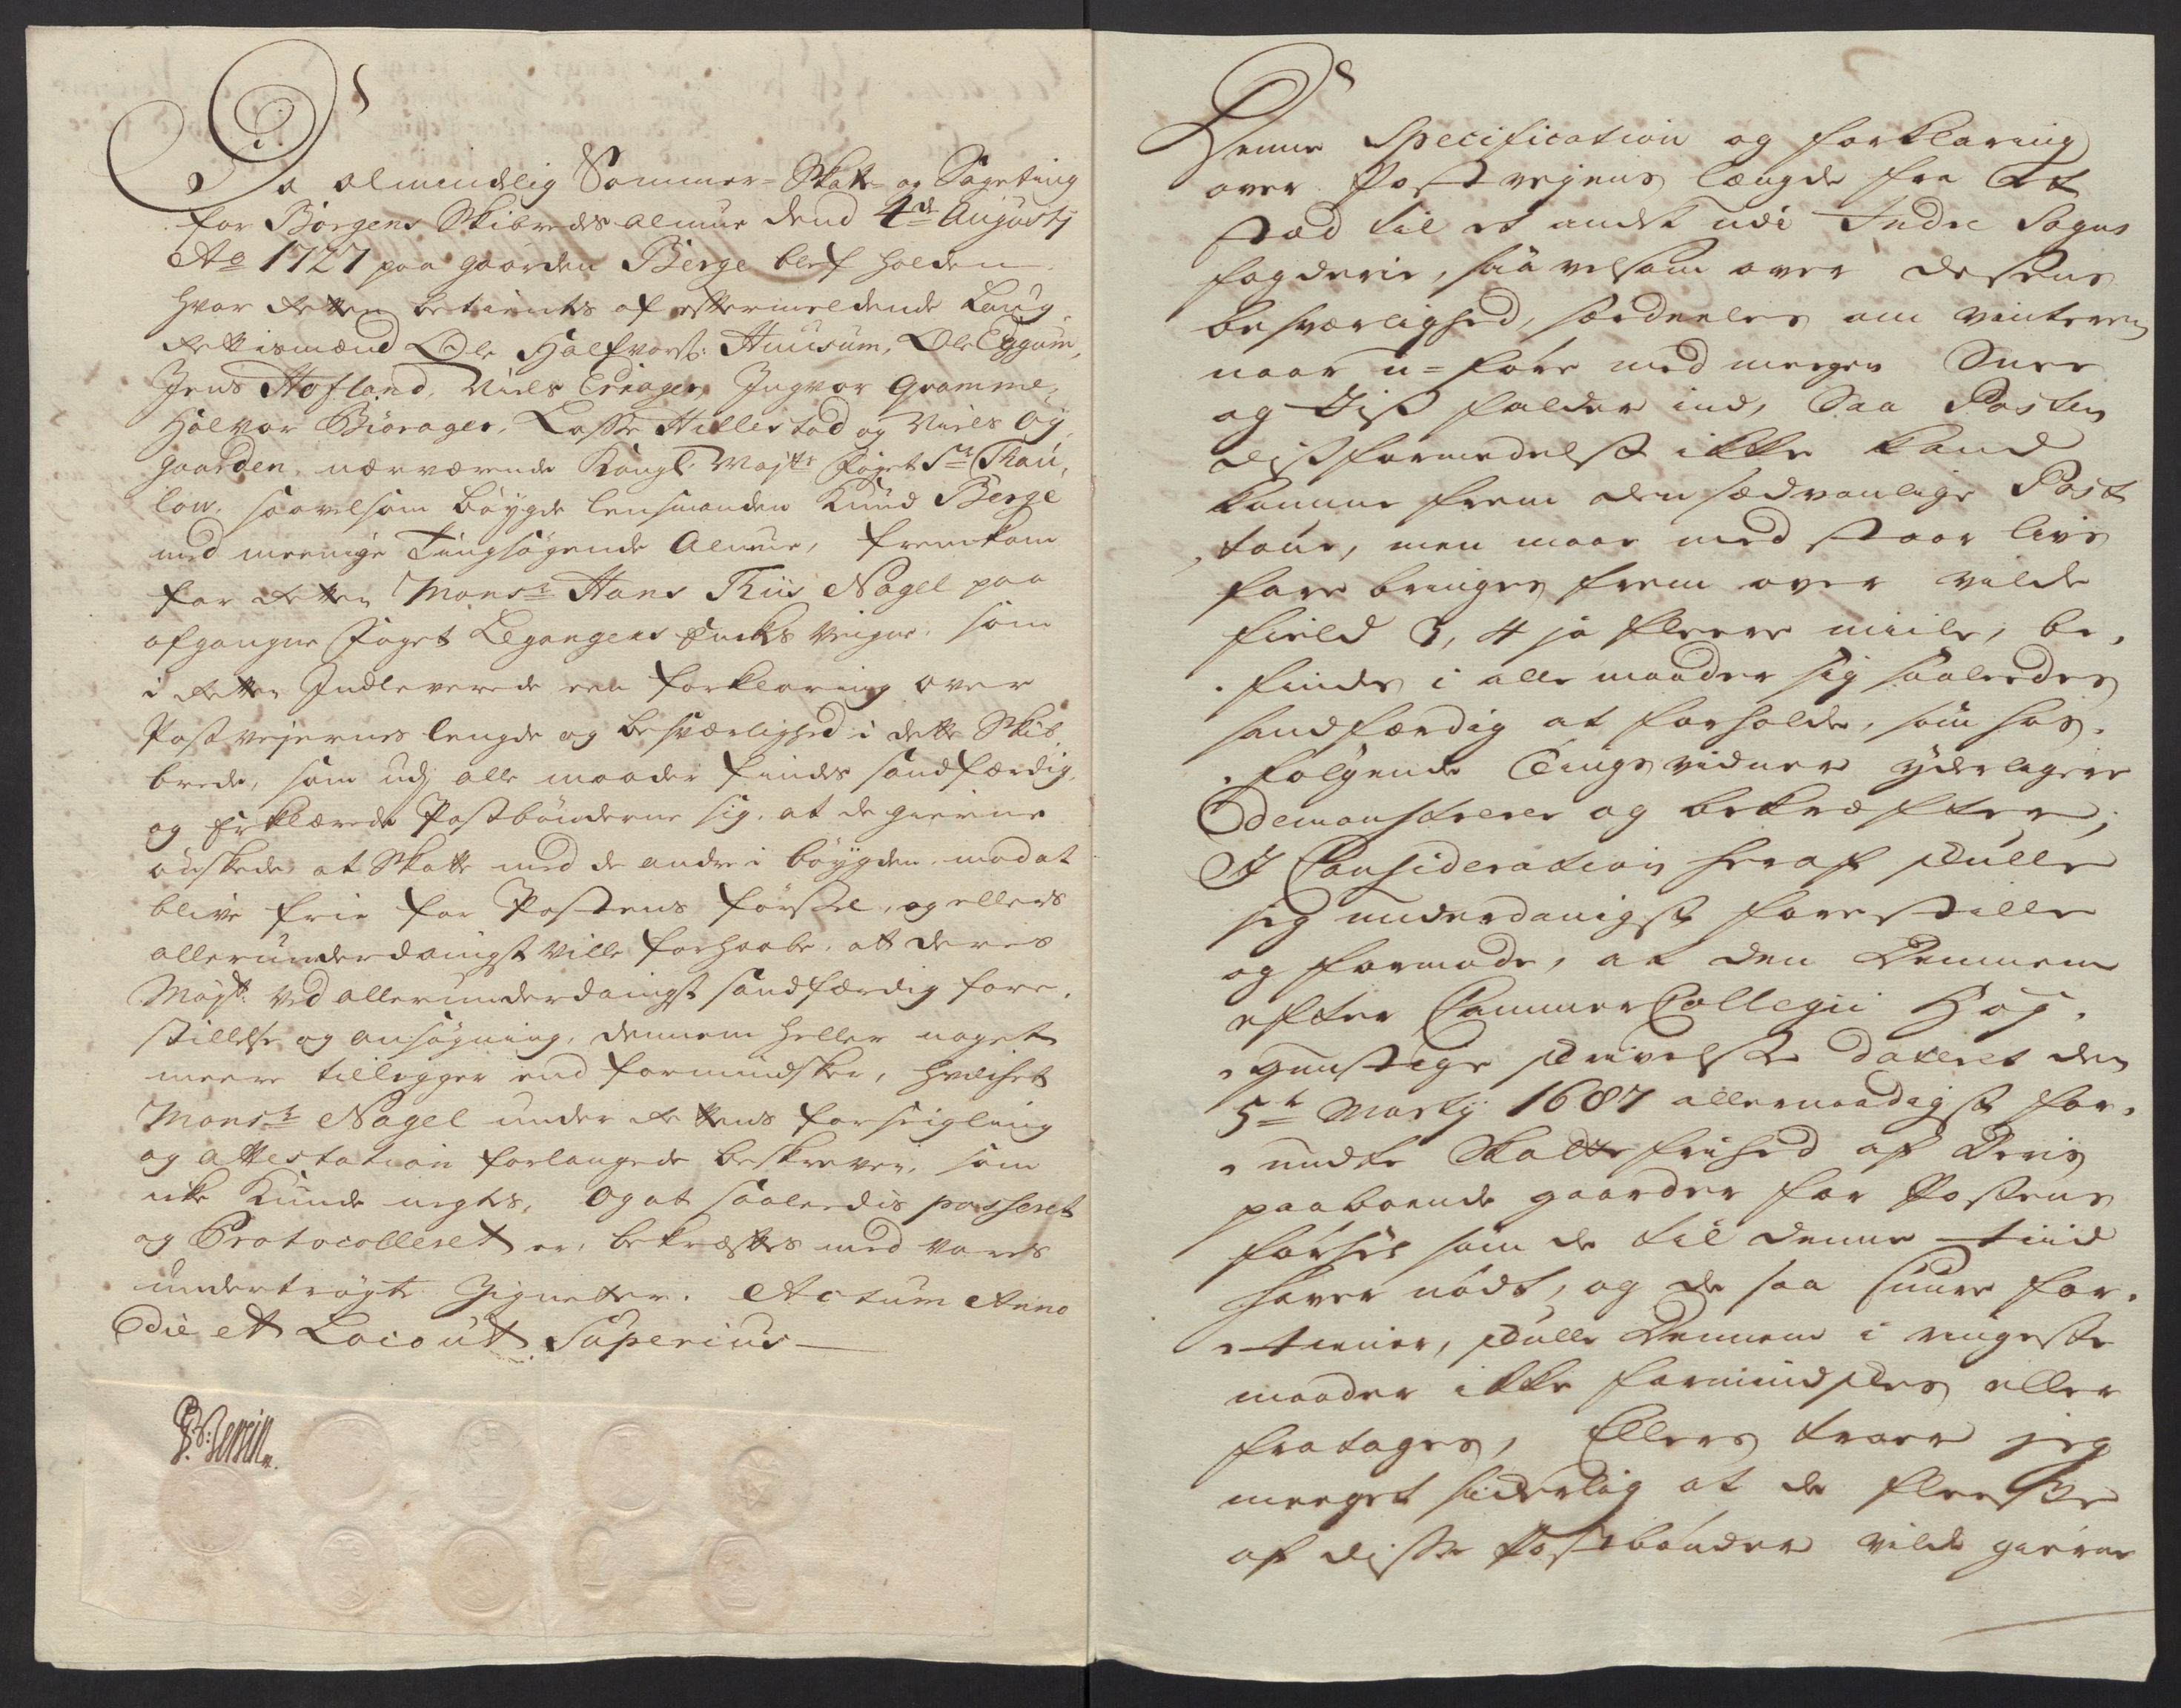 Da almindelig Sommer-Skatte- og Sageting
for Børgens Skibredes almue dend 4de Augusty
Ao 1727 paa gaarden Berge blef holden
hvor Retten betients af eftermeldende Laug-
rettismænd Ole Halfvors: Huusum, Ole Eggum,
Jens Hofland, Niels Ernager, Ingvar Gramme,
Halvor Biørager, Lasse Hillestad og Niels Øy-
gaarden, nærværende Kongl: Majtts Foget Sr Thau-
low, saavelsom bøygde lensmanden Knud Berge
med meenige Tingsøgende Almue, fremkom
for Retten Monsr Hans Thiis Nagel paa
afgangne Foget Legangers Enckes Veigne, som
i Retten Indleverede een forklaring over
Postvejernes lengde og besværlighed i dette Skib-
brede, som udj alle maader findes sandfærdig,
og Erklærede Postbønderne sig, at de gierne
ønskede at Skatte med de andre i bøygden, mod at
blive frie for Postens førsel, og ellers
allerunderdanigst ville forhaabe, att deres
Majtt: ved allerunderdanigst sandfærdig fore-
stillelse og ansøgning, dennem heller noget
meere tillegger end formindsker, hvilchet
Monsr Nagel under Rettens forseigling
og attestation forlangede beskreven, som
icke kunde negtes, Og at saaledis passeret
og Protocolleret er, bekræftes med vores
undertrøgte Zigneter. Actum Anno
die et Loco ut Superius
Denne Specification og forklaring
over Postvejens længde fra Et
stæd til et andet udi Indre Sogns
fogderie, saa velsom over desens
besværlighed, særdeeles om vinteren
naar u-føre med meegen Snee
og Iis falder ind, Saa Posten
dissformedelst ikke kand
komme frem den sædvanlige Post
tour, men maae med stoor livs
fare bringes frem over vilde
field 3, 4 ja fleere miile, be-
findes i alle maader sig saaleedes
sandfærdig at forholde, som hos-
følgende Tingsvidner yderligere
demonstrerer og bekræfter;
I Consideration heraf skulle
jeg underdanigst forestille
og formode, at den Dennem
efter CammerCollegii Høy-
gunstige skrivelse dateret den
5te Marty 1687 allernaadigst for-
undte Skattefrihed af Deris
paaboende gaarder for Postens
førsel som de til denne tiid
haver nødt, og de saa suure for-
tiener, skulle Dennem i ringeste
maader ikke formindskes eller
fratages, Ellers troer jeg
meeget sickerlig at de fleeste
af disse Postbønder vilde gierne